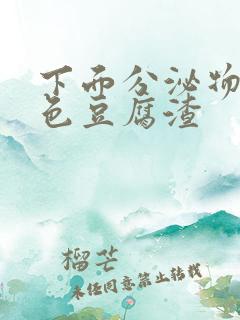 下面分泌物
色豆腐渣
榴芒
未经同意禁止转载